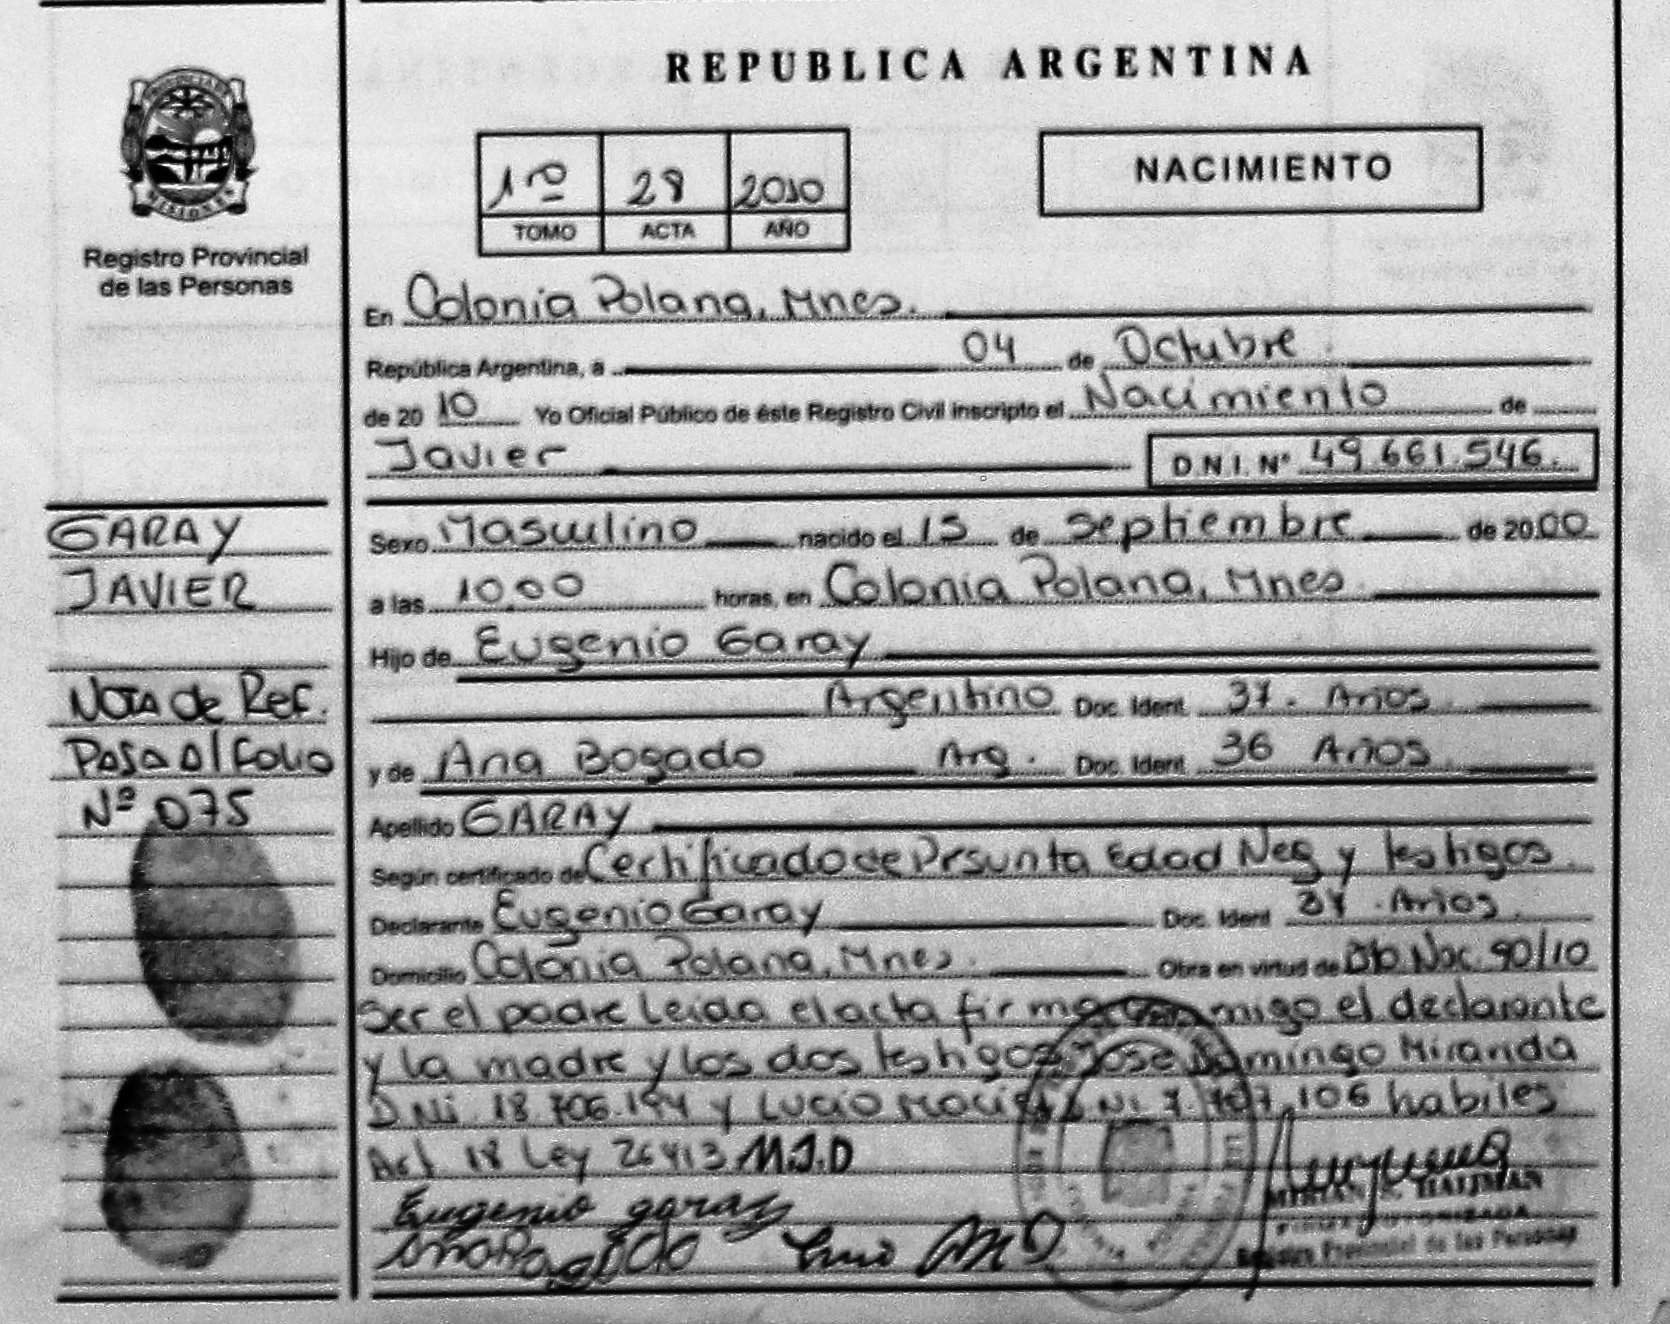 REPUBLICA ARGENTINA
MISIONES
Registro Provincial
de las Personas
1ro 28 2010
TOMO ACTA AÑO
NACIMIENTO
En Colonia Polana, Mnes.
República Argentina, a 04 de Octubre
de 2010 Yo Oficial Público de éste Registro Civil inscripto el Nacimiento de
Javier D.N.I. Nº 49.661.546.
GARAY
JAVIER
NOTA de Ref.
PASA Al Folio
Nº 075
Sexo Masculino nacido el 15 de Septiembre de 2000
a las 10,00 horas, en Colonia Polana, Mnes
Hijo de Eugenio Garay
Argentino Doc. Ident. 37. Años
y de Ana Bogado Arg. Doc. Ident. 36 Años
Apellido GARAY
Según certificado de Certificado de Prsunta Edad Neg y testigos
Declarante Eugenio Garay Doc. Ident 37 Años
Domicilio Colonia Polana, Mnes. Obra en virtud de Nac. 90/10
Ser el padre Leida el acta firma conmigo el declarante
y la madre y los dos testigos Jose Domingo Miranda
DNi. 18.706.194 y Lucio 106 habiles
Art 18 Ley 26413 M.J.D
Eugenio garay
Ana Bogado
MIRIAN HAIJMAN
FIRMA AUTORIZADA
Registro Provincial de las Personas